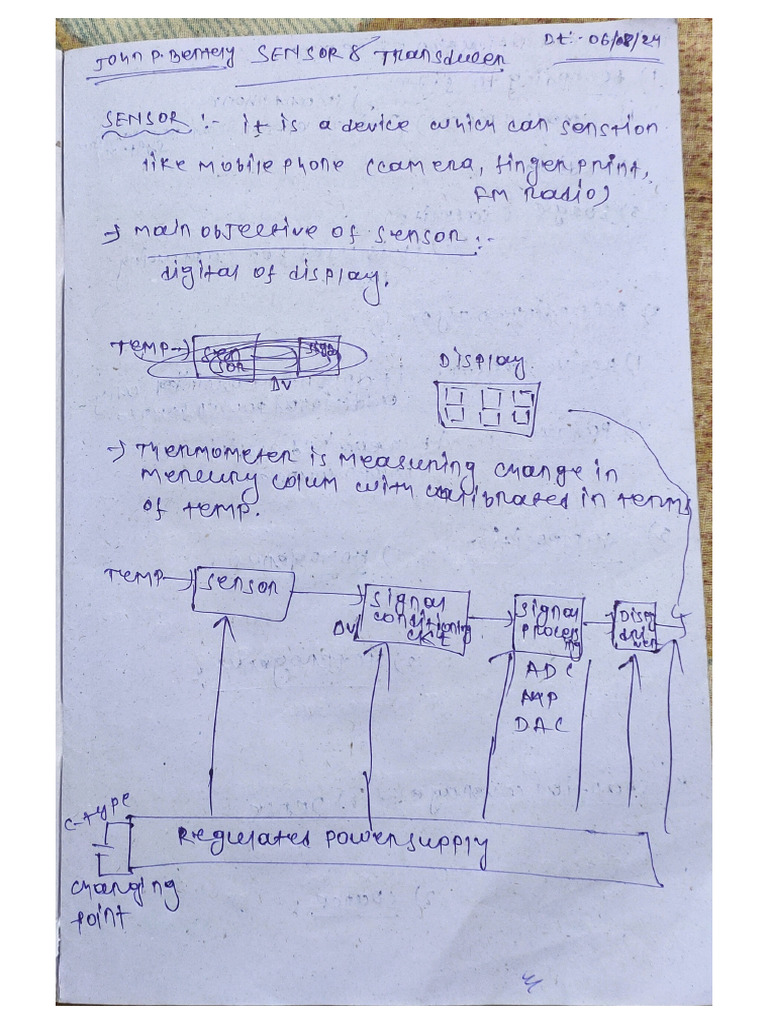 John P. Bentely SENSOR & Transducer Dt:- 06/08/24
SENSOR :- it is a device which can senstion
like mobile phone (camera, finger print,
FM Radio)
→ main objective of sensor:-
digital of display.
TEMP→ Sensor
ΔV
Display
→ Thermometer is measuring change in
mercury colum with calibrated in terms
of temp.
TEMP→ Sensor
Signal
conditioning
ckt
ΔV
Signal
process
ing
ADC
DAC
Disp
driver
C-type
charging
point
Regulated power supply